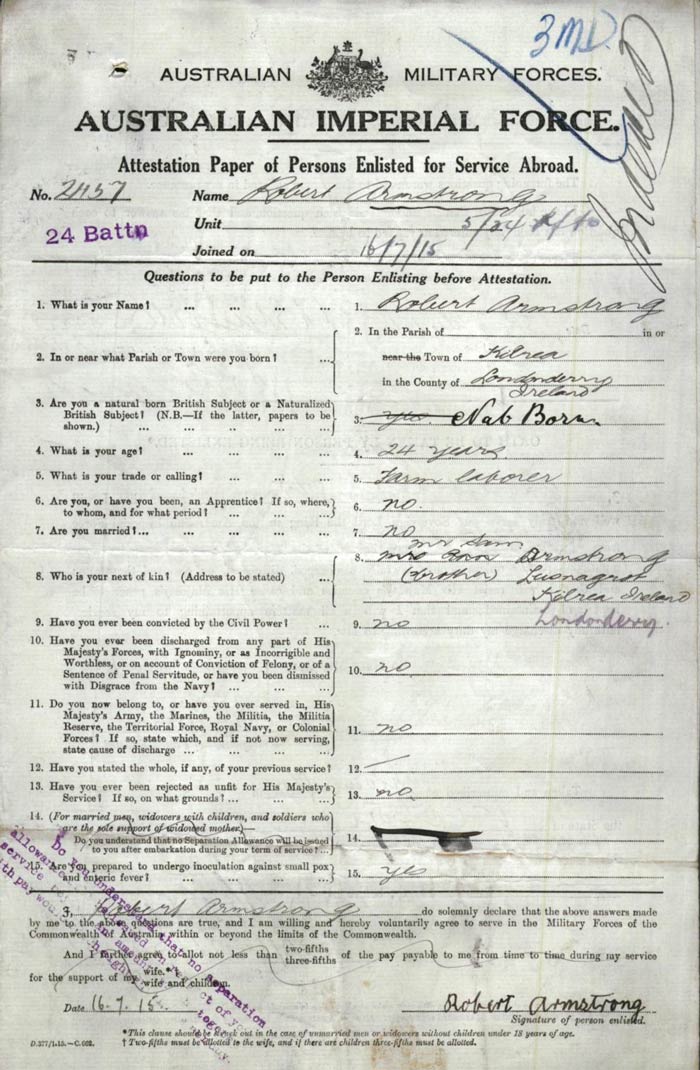 3 MD.
AUSTRALIAN MILITARY FORCES.
AUSTRALIAN IMPERIAL FORCE.
Attestation Paper of Persons Enlisted for Service Abroad.
No. 2457 Name Robert Armstrong
24 Battn Unit 5/24
Joined on 16/7/15
Questions to be put to the Person Enlisting before Attestation.
1. What is your Name? ... ... ... ... 1. Robert Armstrong
2. In the Parish of in or
2. In or near what Parish or Town were you born? ... near the Town of Kilrea
in the County of Londonderry
Ireland
3. Are you a natural born British Subject or a Naturalized
British Subject? (N.B.—If the latter, papers to be
shown.) ... ... ... ... ... 3. Yes. Nat Born
4. What is your age? ... ... ... ... 4. 24 years.
5. What is your trade or calling? ... ... ... 5. Farm laborer
6. Are you, or have you been, an Apprentice? If so, where,
to whom, and for what period? ... ... ... 6. no.
7. Are you married?... ... ... ... ... 7. no
mr Sam
8. mrs Armstrong
8. Who is your next of kin? (Address to be stated) ... (Brother) Lusnagrot
Kilrea Ireland
9. Have you ever been convicted by the Civil Power? ... 9. no Londonderry.
10. Have you ever been discharged from any part of His
Majesty's Forces, with Ignominy, or as Incorrigible and
Worthless, or on account of Conviction of Felony, or of a
Sentence of Penal Servitude, or have you been dismissed
with Disgrace from the Navy? ... ... ... 10. no
11. Do you now belong to, or have you ever served in, His
Majesty's Army, the Marines, the Militia, the Militia
Reserve, the Territorial Force, Royal Navy, or Colonial
Forces? If so, state which, and if not now serving,
state cause of discharge ... ... ... ... 11. no
12. Have you stated the whole, if any, of your previous service? 12. /
13. Have you ever been rejected as unfit for His Majesty's
Service? If so, on what grounds? ... ... ... 13. no.
14. (For married men, widowers with children, and soldiers who
are the sole support of widowed mother)—
Do you understand that no Separation Allowance will be issued
to you after embarkation during your term of service? ... 14.
15. Are you prepared to undergo inoculation against small pox
and enteric fever? ... ... ... ... 15. yes
Do you understand that no separation
I, Robert Armstrong do solemnly declare that the above answers made
by me to the above questions are true, and I am willing and hereby voluntarily agree to serve in the Military Forces of the
Commonwealth of Australia within or beyond the limits of the Commonwealth.
And I further agree to allot not less than two-fifths three-fifths of the pay payable to me from time to time during my service
for the support of my wife.* wife and children.
Date 16.7.15 Robert Armstrong
Signature of person enlisted.
*This clause should be struck out in the case of unmarried men or widowers without children under 18 years of age.
D.377/1.15.—C.662. † Two-fifths must be allotted to the wife, and if there are children three-fifths must be allotted.